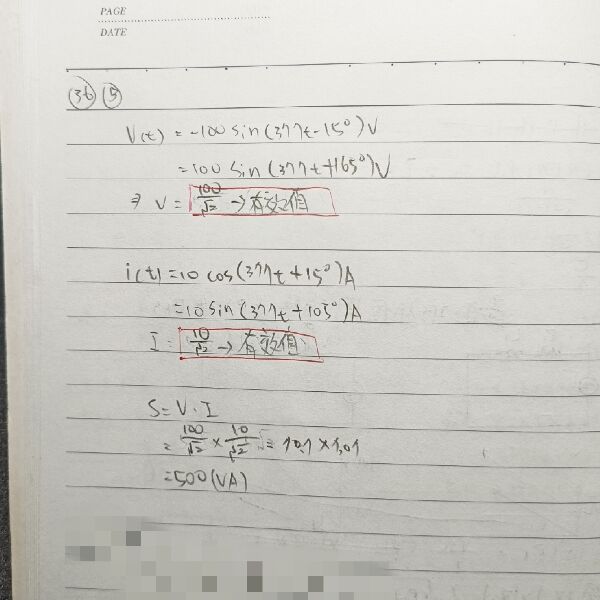 PAGE
DATE
36 B
V(t) = -100 sin(377t-15°)V
= 100 sin(377t+165°)V
⇒ V = 100/√2 → 有效值
i(t) = 10 cos(377t+15°)A
= 10 sin(377t+105°)A
I = 10/√2 → 有效值
S = V · I
= 100/√2 × 10/√2
= 500 (VA)